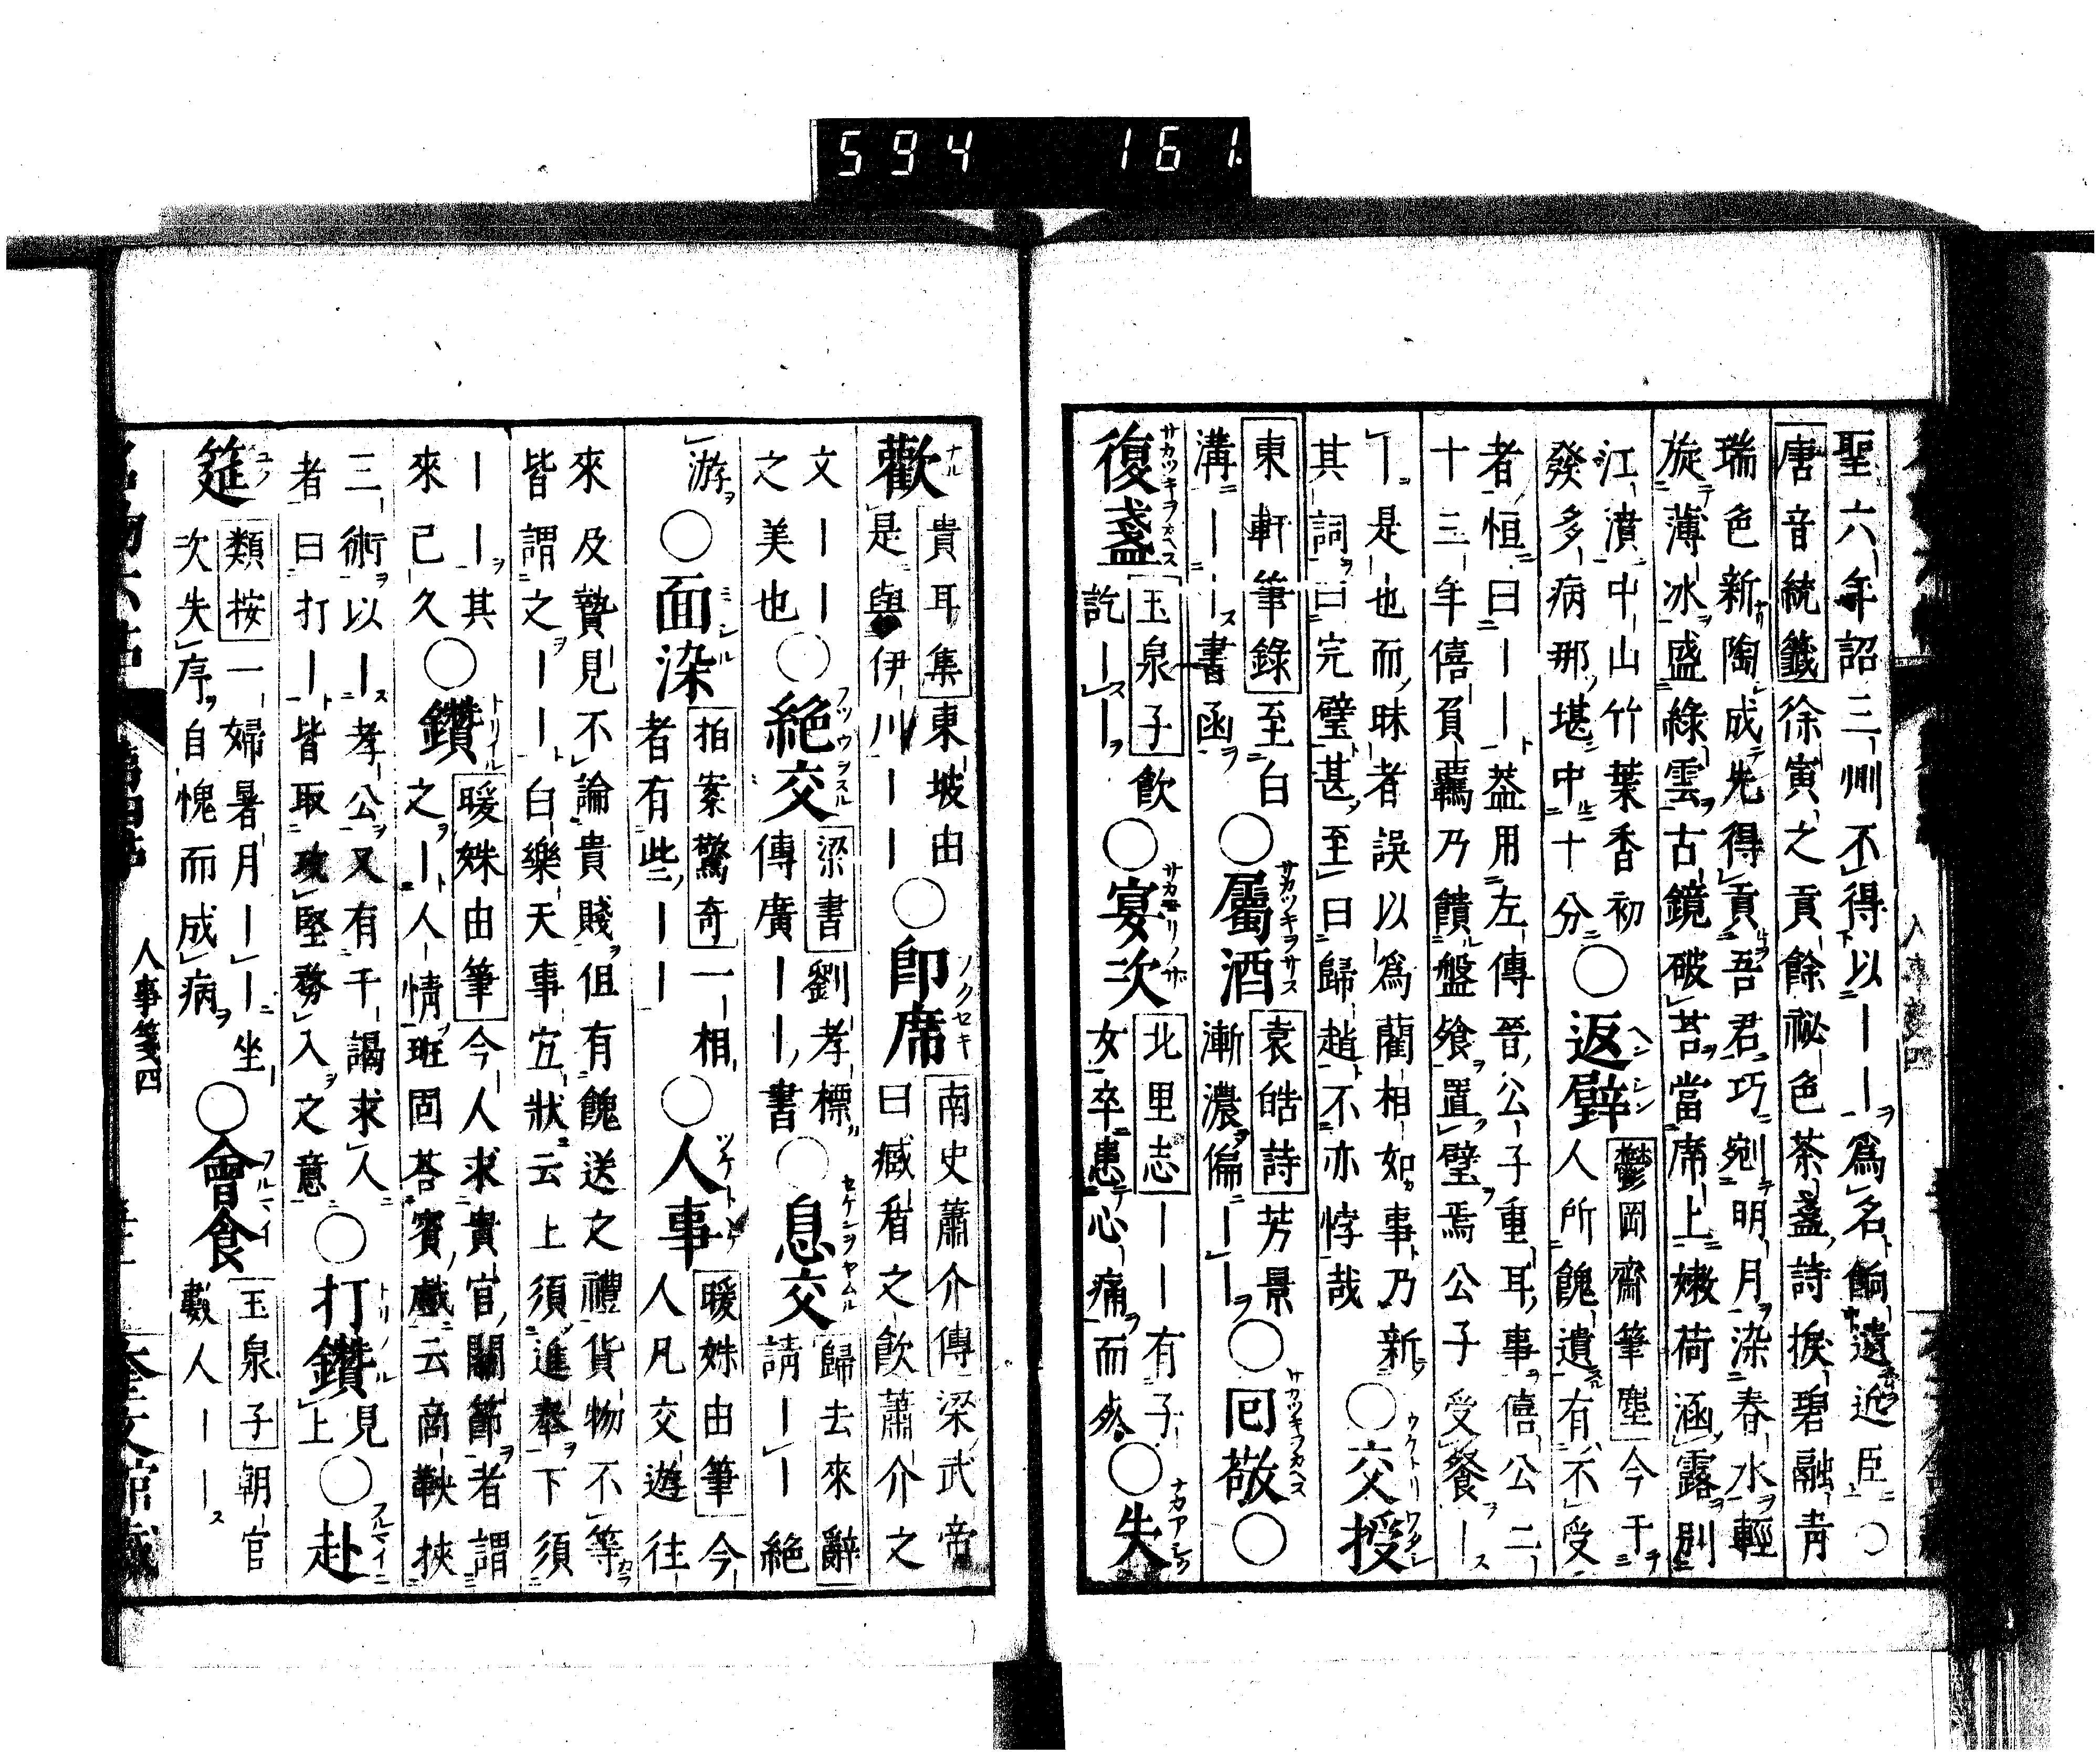 594 161
聖六年詔三州不得以ーー爲名餉遺近臣○
唐音統籤徐寅之貢餘祕色茶盞詩捩碧融青
瑞色新陶成先得貢吾君巧剜明月染春水輕
旋薄冰盛綠雲古鏡破苔當席上嫩荷涵露別
江濆中山竹葉香初
發多病那堪中十分
○返璧
鬱岡齋筆麈今于
人所餽遺有不受
者恒曰ーー葢用左傳晉公子重耳事僖公二
十三年僖負羈乃饋盤飧置璧焉公子受飧ー
ー是也而昧者誤以爲藺相如事乃新
其詞曰完璧甚至曰歸趙不亦悖哉
○交授
東軒筆錄至白
溝ーー書函
○屬酒
袁皓詩芳景
漸濃偏ーー
○囘敬○
復盞
玉泉子飲
訖ーー
○宴次
北里志ーー有子
女卒患心痛而終
○失
歡
貴耳集東坡由
是與伊川ーー
○即席
南史蕭介傳梁武帝
曰臧盾之飲蕭介之
文ーー
之美也
○絕交
梁書劉孝標
傳廣ーー書
○息交
歸去來辭
請ーー絕
游
○面染
拍案驚奇一相
者有些ーー
○人事
暖姝由筆今
人凡交遊往
來及贄見不論貴賤但有餽送之禮貨物不等
皆謂之ーー白樂天事宜狀云上須進奉下須
ーー其
來已久
○鑽
暖姝由筆今人求貴官關節者謂
之ー人情班固荅賓戲云商鞅挾
三術以ー孝公又有干謁求人
者曰打ー皆取攻堅務入之意
○打鑽
見
上
○赴
筵
類按一婦暑月ーー坐
次失序自愧而成病
○會食
玉泉子朝官
數人ーー
人事箋四